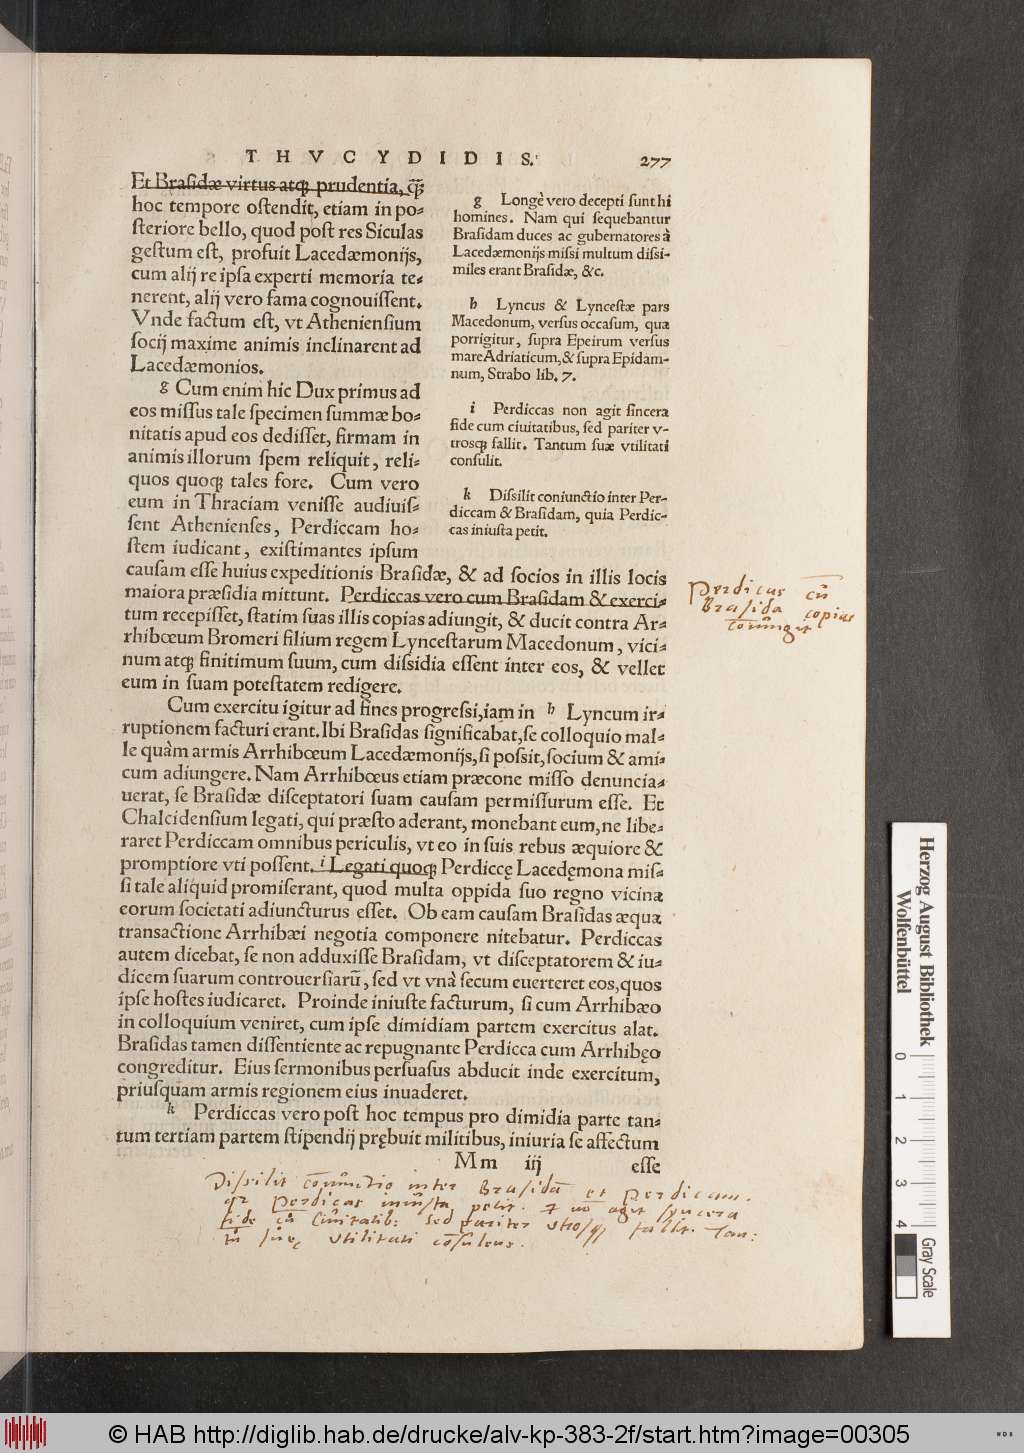 THVCYDIDIS. 277
Et Braſidæ virtus atq; prudentia, q̃;
hoc tempore oſtendit, etiam in po-
ſteriore bello, quod poſt res Siculas
geſtum eſt, profuit Lacedæmonijs,
cum alij re ipſa experti memoria te-
nerent, alij vero fama cognouiſſent.
Vnde factum eſt, vt Athenienſium
ſocij maxime animis inclinarent ad
Lacedæmonios.
g Cum enim hic Dux primus ad
eos miſſus tale ſpecimen ſummæ bo-
nitatis apud eos dediſſet, firmam in
animis illorum ſpem reliquit, reli-
quos quoq; tales fore. Cum vero
eum in Thraciam veniſſe audiuiſ-
ſent Athenienſes, Perdiccam ho-
ſtem iudicant, exiſtimantes ipſum
g Longè vero decepti ſunt hi
homines. Nam qui ſequebantur
Braſidam duces ac gubernatores à
Lacedæmonijs miſsi multum diſsi-
miles erant Braſidæ, &c.
h Lyncus & Lynceſtæ pars
Macedonum, verſus occaſum, qua
porrigitur, ſupra Epeirum verſus
mare Adriaticum, & ſupra Epidam-
num, Strabo lib. 7.
i Perdiccas non agit ſincera
fide cum ciuitatibus, ſed pariter v-
trosq; fallit. Tantum ſuæ vtilitati
conſulit.
k Diſsilit coniunctio inter Per-
diccam & Braſidam, quia Perdic-
cas iniuſta petit.
cauſam eſſe huius expeditionis Braſidæ, & ad ſocios in illis locis
maiora præſidia mittunt. Perdiccas vero cum Braſidam & exerci-
tum recepiſſet, ſtatim ſuas illis copias adiungit, & ducit contra Ar-
rhibœum Bromeri filium regem Lynceſtarum Macedonum, vici-
num atq; finitimum ſuum, cum diſsidia eſſent inter eos, & vellet
eum in ſuam poteſtatem redigere.
Perdicas cū
Braſida copias
coniūngit
Cum exercitu igitur ad fines progreſsi, iam in h Lyncum ir-
ruptionem facturi erant. Ibi Braſidas ſignificabat, ſe colloquio mal-
le quàm armis Arrhibœum Lacedæmonijs, ſi poſsit, ſocium & ami-
cum adiungere. Nam Arrhibœus etiam præcone miſſo denuncia-
uerat, ſe Braſidæ diſceptatori ſuam cauſam permiſſurum eſſe. Et
Chalcidenſium legati, qui præſto aderant, monebant eum, ne libe-
raret Perdiccam omnibus periculis, vt eo in ſuis rebus æquiore &
promptiore vti poſſent. i Legati quoq; Perdiccę Lacedęmona miſ-
ſi tale aliquid promiſerant, quod multa oppida ſuo regno vicina
eorum ſocietati adiuncturus eſſet. Ob eam cauſam Braſidas æqua
transactione Arrhibæi negotia componere nitebatur. Perdiccas
autem dicebat, ſe non adduxiſſe Braſidam, vt diſceptatorem & iu-
dicem ſuarum controuerſiarū, ſed vt vnà ſecum euerteret eos, quos
ipſe hoſtes iudicaret. Proinde iniuſte facturum, ſi cum Arrhibæo
in colloquium veniret, cum ipſe dimidiam partem exercitus alat.
Braſidas tamen diſſentiente ac repugnante Perdicca cum Arrhibęo
congreditur. Eius ſermonibus perſuaſus abducit inde exercitum,
priuſquam armis regionem eius inuaderet.
k Perdiccas vero poſt hoc tempus pro dimidia parte tan-
tum tertiam partem ſtipendij prębuit militibus, iniuria ſe affectum
Mm iij eſſe
Diſsilit coniūnctio inter Braſidā et Perdicam.
qr Perdicas iniūſta petit. et nō agit ſyncera
fide cū Ciūitatib: ſed pariter vtroſq; fallit. Tan:
tū ſuę vtilitati cōſulens.
Herzog August Bibliothek
Wolfenbüttel
0 1 2 3 4
Gray Scale
© HAB http://diglib.hab.de/drucke/alv-kp-383-2f/start.htm?image=00305